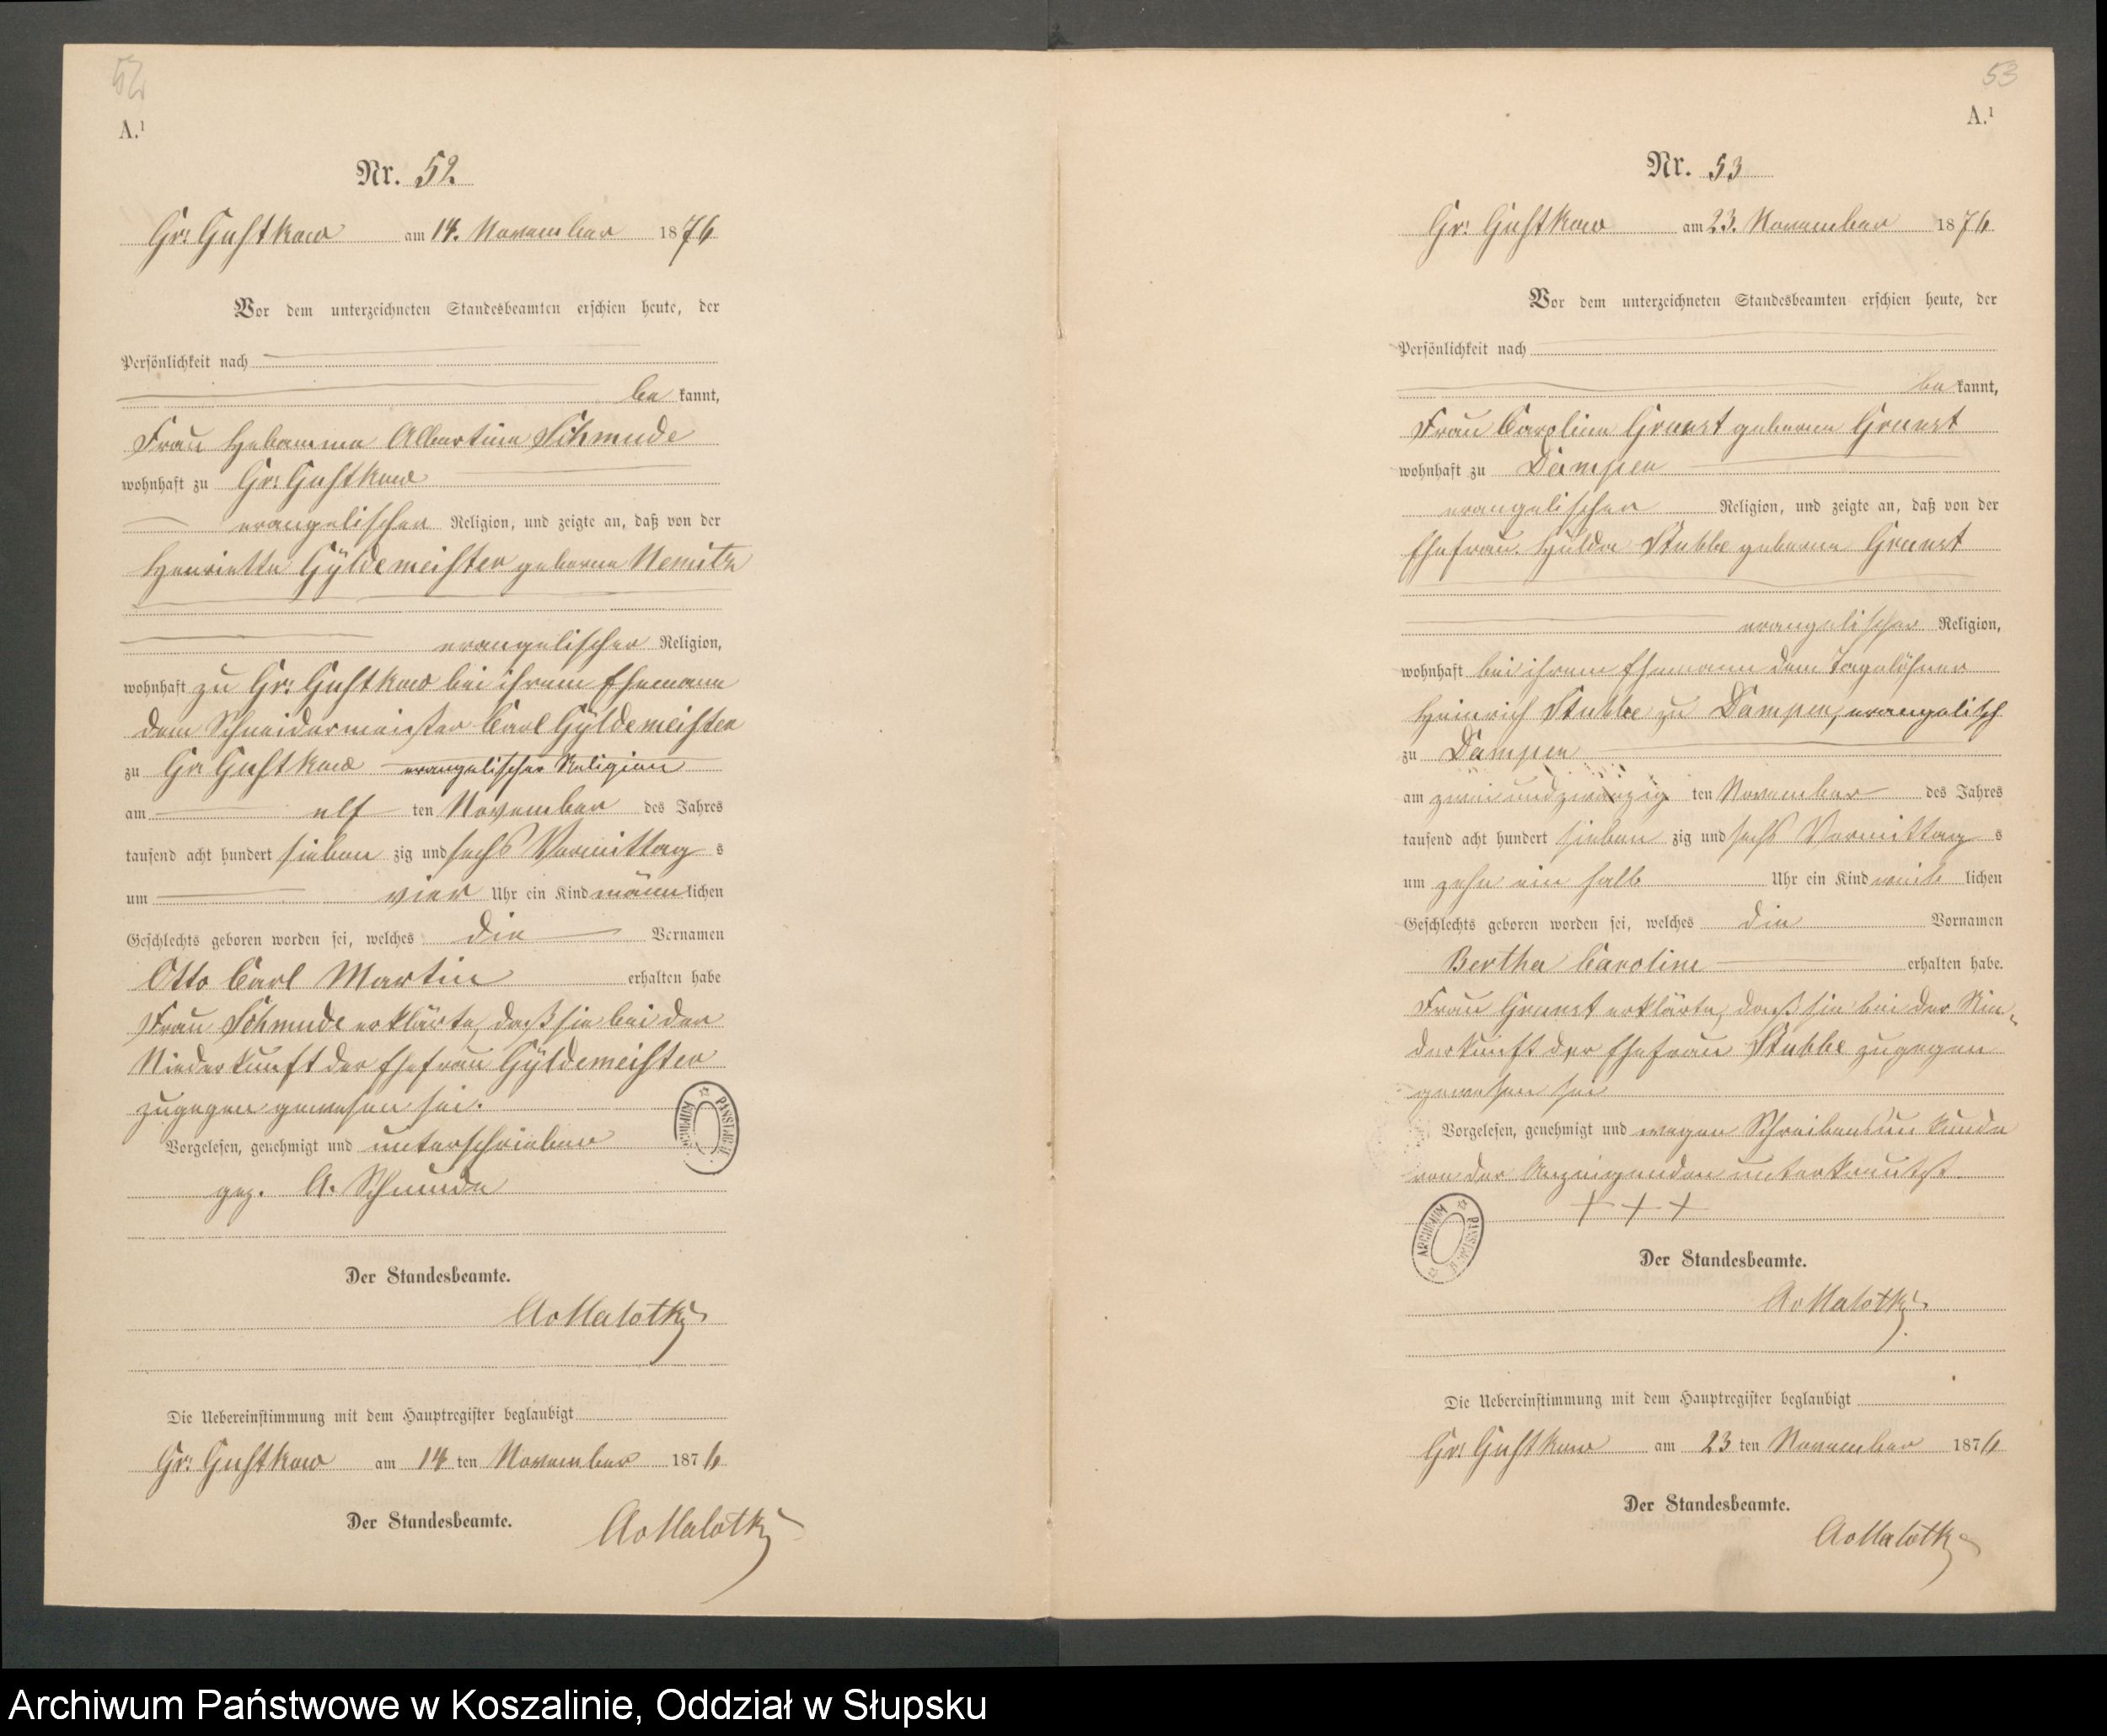 52
A.¹
Nr. 52
Gr: Gustkow am 14. November 1876
Vor dem unterzeichneten Standesbeamten erschien heute, der
Persönlichkeit nach
be kannt,
Frau Hebamme Albertine Schmude
wohnhaft zu Gr: Gustkow
evangelischer Religion, und zeigte an, daß von der
Henriette Gÿldemeister geborne Nemitz
evangelischer Religion,
wohnhaft zu Gr: Gustkow bei ihrem Ehemann
dem Schneidermeister Carl Gÿldemeister
zu Gr Gustkow evangelischer Religion
am elf ten November des Jahres
tausend acht hundert sieben zig und sechs Vormittag s
um vier Uhr ein Kind männ lichen
Geschlechts geboren worden sei, welches die Vornamen
Otto Carl Martin erhalten habe
Frau Schmude erklärte, daß sie bei der
Niederkunft der Ehefrau Gÿldemeister
zugegen gewesen sei.
Vorgelesen, genehmigt und unterschrieben
gez. A. Schmude
Der Standesbeamte.
AvMalotky
Die Uebereinstimmung mit dem Hauptregister beglaubigt
Gr: Gustkow am 14 ten November 1876
Der Standesbeamte.
AvMalotky
53
A.¹
Nr. 53
Gr: Gustkow am 23. November 1876
Vor dem unterzeichneten Standesbeamten erschien heute, der
Persönlichkeit nach
be kannt,
Frau Caroline Grunst geborne Grunst
wohnhaft zu Dampen
evangelischer Religion, und zeigte an, daß von der
Ehefrau Hulda Stubbe geborne Grunst
evangelischer Religion,
wohnhaft bei ihrem Ehemann dem Tagelöhner
Heinrich Stubbe zu Dampen, evangelisch
zu Dampen
am zwei und zwanzig ten November des Jahres
tausend acht hundert sieben zig und sechs Vormittag s
um zehn ein halb Uhr ein Kind weib lichen
Geschlechts geboren worden sei, welches die Vornamen
Bertha Caroline erhalten habe.
Frau Grunst erklärte, daß sie bei der Nie-
derkunft der Ehefrau Stubbe zugegen
gewesen sei
Vorgelesen, genehmigt und wegen Schreibensunkunde
von der Anzeigenden unterkreutzt.
+ + +
ARCHIWUM PAŃSTW.
Der Standesbeamte.
AvMalotky
Die Uebereinstimmung mit dem Hauptregister beglaubigt
Gr: Gustkow am 23 ten November 1876
Der Standesbeamte.
AvMalotky
Archiwum Państwowe w Koszalinie, Oddział w Słupsku